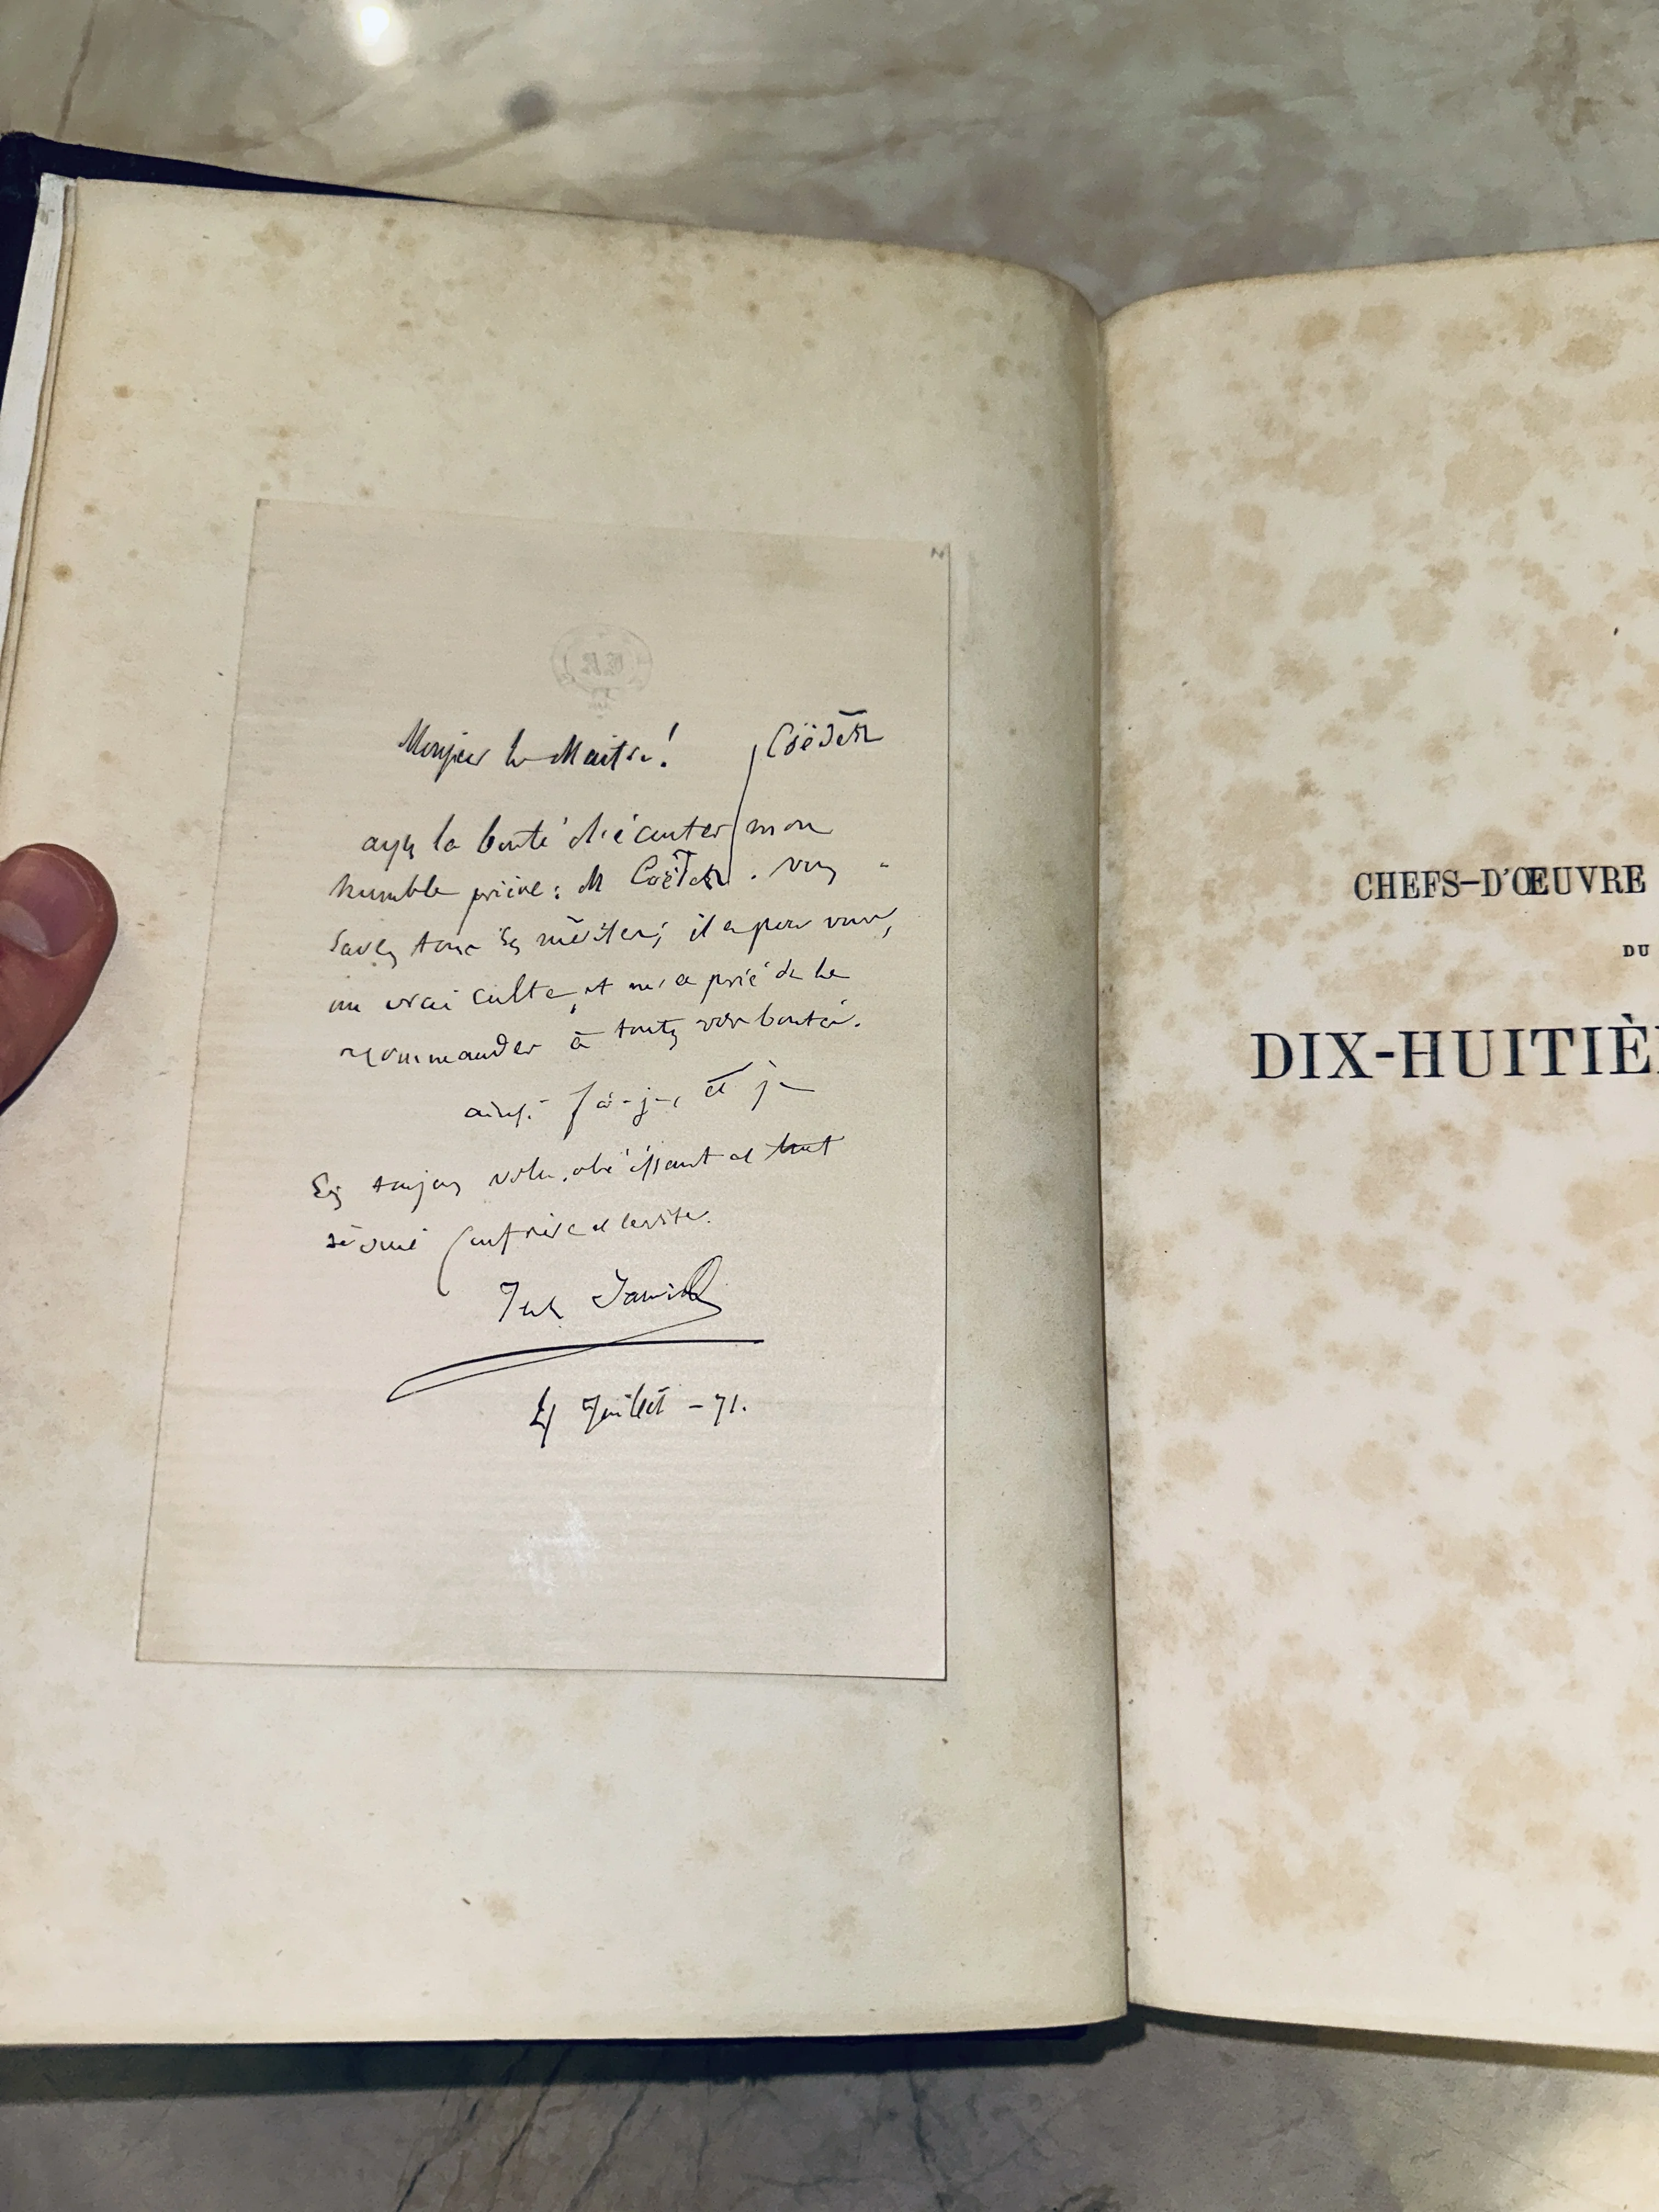 Monsieur le Maitre!
Coëdès
ayez la bonté d'écouter mon
humble prière: M Coëdès. vous
savez tous ses mérites; il a pour vous,
un vrai culte, et m'a prié de le
recommander à toutes vos bontés.
ainsi fais-je, et je
suis toujours votre obéissant et tout
dévoué confrère et
Jules Janin
Juillet - 71.
CHEFS-D'ŒUVRE
DU
DIX-HUITIÈ